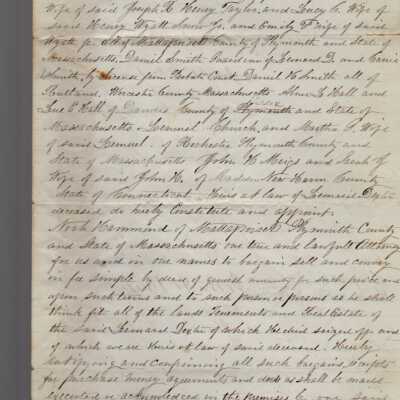 Wife of said Joseph R. Henry Taylor, and Lucy C. Wife of
said Henry Wyatt Snow Jr. and Emily F. Wife of said
Wyatt Jr. all of Mattapoisett County of Plymouth and State of
Massachusetts, Daniel Smith Guardian of Leonard D. and Carrie
Smith, by license from Probate Court, Daniel W. Smith all of
Rutland, Worcester County Massachusetts L. Hall and
Luce L. Hall of County of Plymouth and State of
Massachusetts. Lemuel Church, and Martha S. Wife
of said Lemuel. of Rochester Plymouth County and
State of Massachusetts John H. Meigs and Sarah
Wife of said John H. of Madison New Haven County
State of Connecticut. Heirs at law of Leonard Dexter
deceased do hereby Constitute and appoint.
Noah Hammond of Mattapoisett Plymouth County
and State of Massachusetts our true and Lawfull Attorney
for us and in our names to bargain sell and convey
in fee simple by deed of general warranty for such price and
upon such terms and to such person or persons as he shall
think fit all of the lands Tenements and Real Estate of
the said Leonard Dexter of which he died seized of and
of which we are Heirs at law of said deceased. Hereby
ratifying and confirming all such bargains receipts
for purchase money agreements and deeds as shall be made
executed or acknowledged in the premises by our said